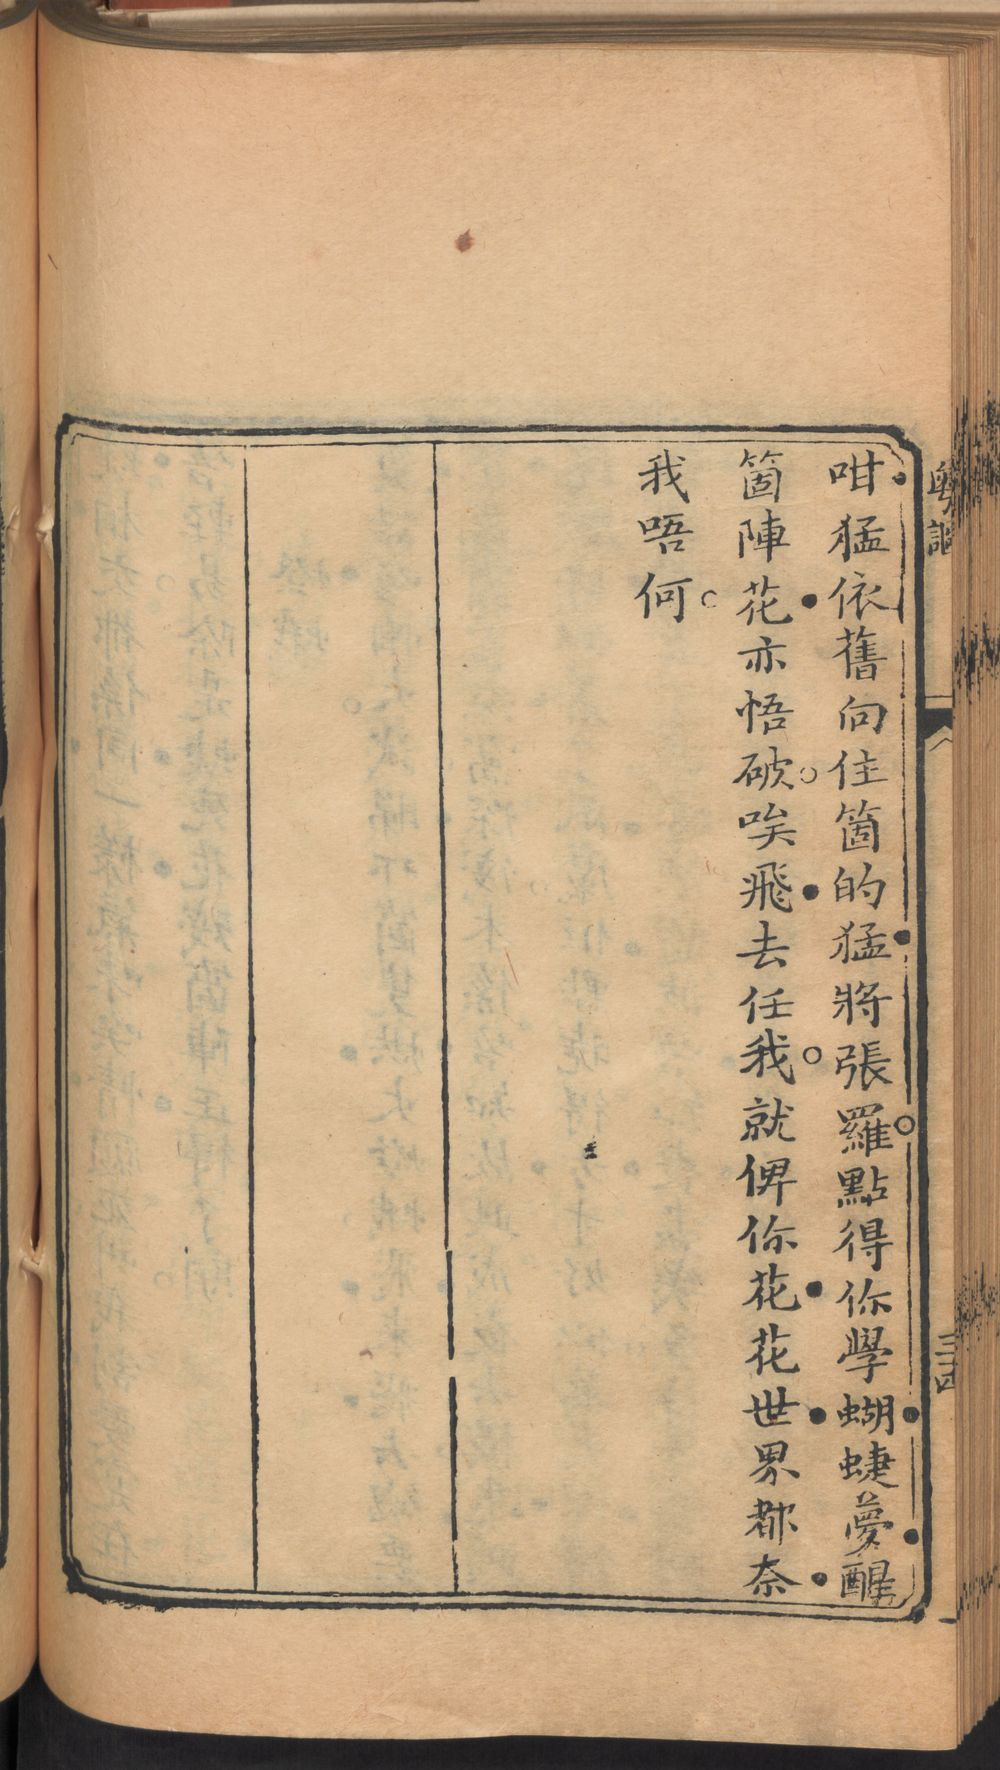 粵謳
三四
咁猛依舊向住箇的猛將張羅點得你學蝴蜨夢醒
箇陣花亦悟破唉飛去任我就俾你花花世界都奈
我唔何